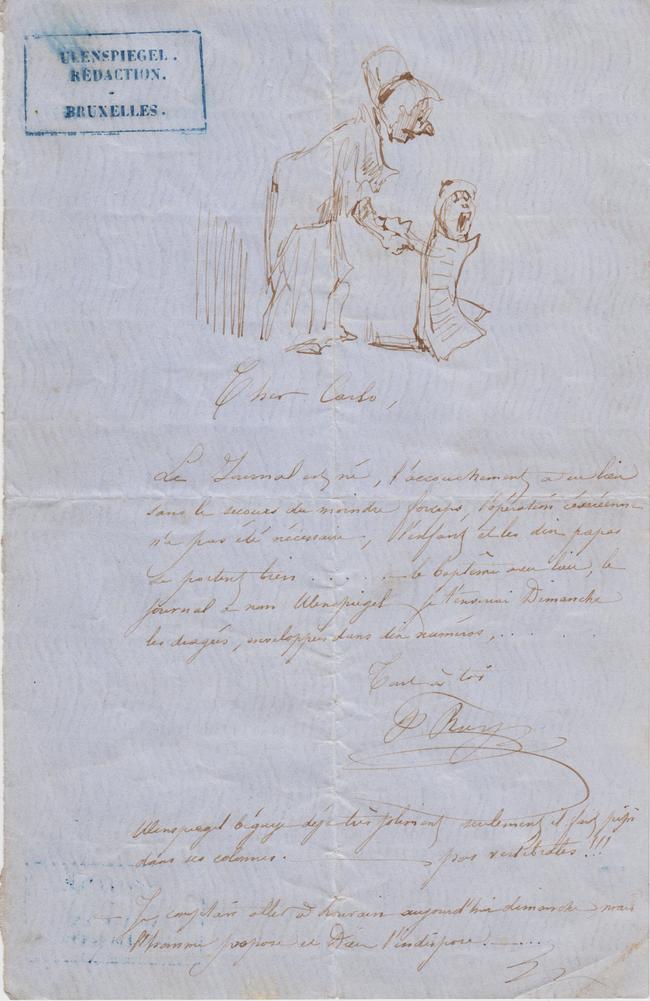 ULENSPIEGEL.
RÉDACTION.
-
BRUXELLES.
Cher Carlo,
Le Journal est né, l'accouchement a eu lieu
sans le secours du moindre forceps, l'opération césarienne
n'a pas été nécessaire, l'enfant et les dix papas
se portent bien ...... le baptême a eu lieu, le
journal a nom Ulenspiegel je t'enverrai Dimanche
les dragées, enveloppées dans dix numéros, ....
Tout à toi
Ulenspiegel bégaye déjà très joliment seulement il fait pipi
dans ses colonnes. pas vertébrales!!!
Je comptais aller à Louvain aujourd'hui dimanche mais
l'homme propose et Dieu l'indispose. ......